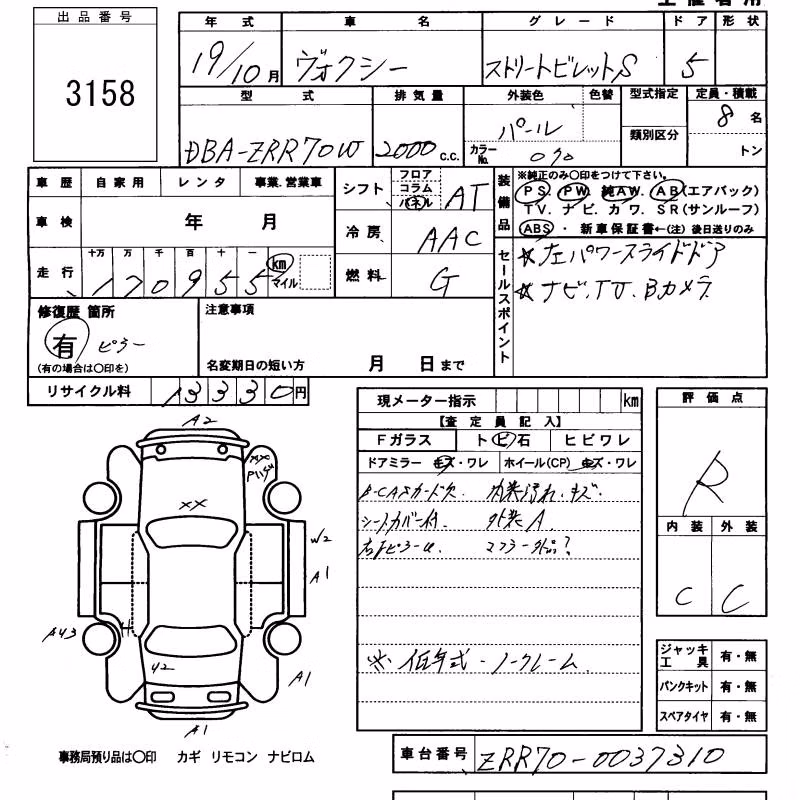 出品番号
3158
年式 車名 グレード ドア 形状
19/10月 ヴォクシー ストリートビレットS 5
型式 排気量 外装色 色替 型式指定 定員・積載
DBA-ZRR70W 2000 c.c. パール 8名
カラーNo. 070 類別区分 トン
車歴 自家用 レンタ 事業.営業車
シフト フロア コラム パネル AT
装備品 ※純正のみ〇印をつけて下さい。
PS. PW. 純AW. AB(エアバック)
TV. ナビ. カワ. SR(サンルーフ)
ABS ・ 新車保証書←(注)後日送りのみ
車検 年 月
冷房 AAC
走行 十万 万 千 百 十 一
170955 km マイル
燃料 G
セールスポイント
☆左パワースライドドア
☆ナビ.TV.Bカメラ
修復歴 箇所
有 ピラー
(有の場合は〇印を)
注意事項
名変期日の短い方 月 日まで
リサイクル料 13330円
現メーター指示 km
【査定員記入】
Fガラス トビ石 ヒビワレ
ドアミラー キズ・ワレ ホイール(CP) キズ・ワレ
B-CASカード欠. 内装汚れ.キズ.
シートカバー付. 外装A.
右 ピラー マフラー外品?
※低年式・ノークレーム.
評価点
R
内装 外装
C C
ジャッキ工具 有・無
パンクキット 有・無
スペアタイヤ 有・無
A2
XX
P
XX
W2
A1
A43
42
A1
A1
事務局預り品は〇印 カギ リモコン ナビロム
車台番号 ZRR70-0037310